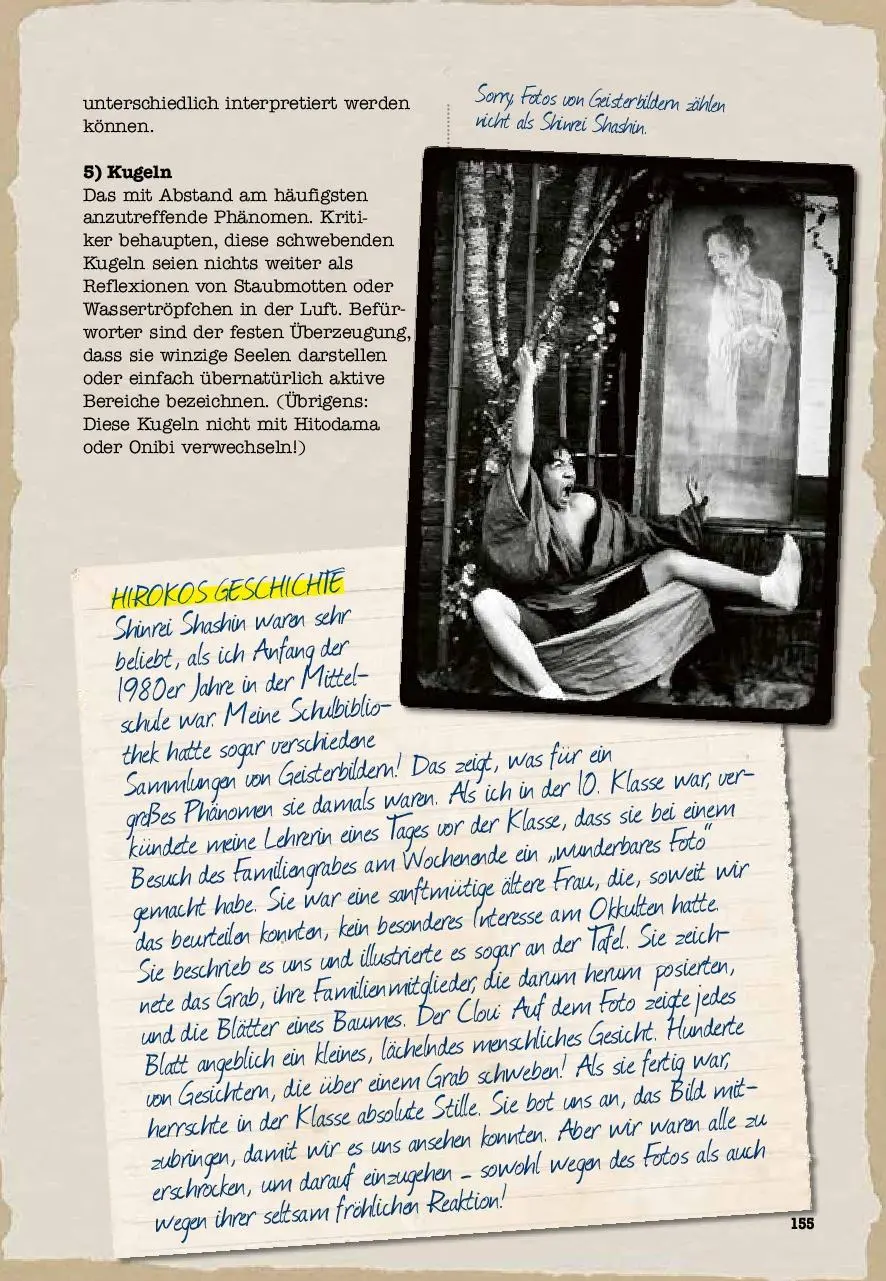 unterschiedlich interpretiert werden
können.
5) Kugeln
Das mit Abstand am häufigsten
anzutreffende Phänomen. Kriti-
ker behaupten, diese schwebenden
Kugeln seien nichts weiter als
Reflexionen von Staubmotten oder
Wassertröpfchen in der Luft. Befür-
worter sind der festen Überzeugung,
dass sie winzige Seelen darstellen
oder einfach übernatürlich aktive
Bereiche bezeichnen. (Übrigens:
Diese Kugeln nicht mit Hitodama
oder Onibi verwechseln!)
Sorry, Fotos von Geisterbildern zählen
nicht als Shinrei Shashin.
HIROKOS GESCHICHTE
Shinrei Shashin waren sehr
beliebt, als ich Anfang der
1980er Jahre in der Mittel-
schule war. Meine Schulbiblio-
thek hatte sogar verschiedene
Sammlungen von Geisterbildern! Das zeigt, was für ein
großes Phänomen sie damals waren. Als ich in der 10. Klasse war, ver-
kündete meine Lehrerin eines Tages vor der Klasse, dass sie bei einem
Besuch des Familiengrabes am Wochenende ein „wunderbares Foto“
gemacht habe. Sie war eine sanftmütige ältere Frau, die, soweit wir
das beurteilen konnten, kein besonderes Interesse am Okkulten hatte.
Sie beschrieb es uns und illustrierte es sogar an der Tafel. Sie zeich-
nete das Grab, ihre Familienmitglieder, die darum herum posierten,
und die Blätter eines Baumes. Der Clou: Auf dem Foto zeigte jedes
Blatt angeblich ein kleines, lächelndes menschliches Gesicht. Hunderte
von Gesichtern, die über einem Grab schweben! Als sie fertig war,
herrschte in der Klasse absolute Stille. Sie bot uns an, das Bild mit-
zubringen, damit wir es uns ansehen konnten. Aber wir waren alle zu
erschrocken, um darauf einzugehen – sowohl wegen des Fotos als auch
wegen ihrer seltsam fröhlichen Reaktion!
155